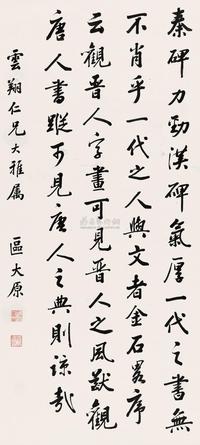 秦碑力勁漢碑氣厚一代之書無
不肖乎一代之人與文者金石畧序
云觀晋人字畫可見晋人之風猷觀
唐人書蹤可見唐人之典則諒哉
雲翔仁兄大雅属
區大原